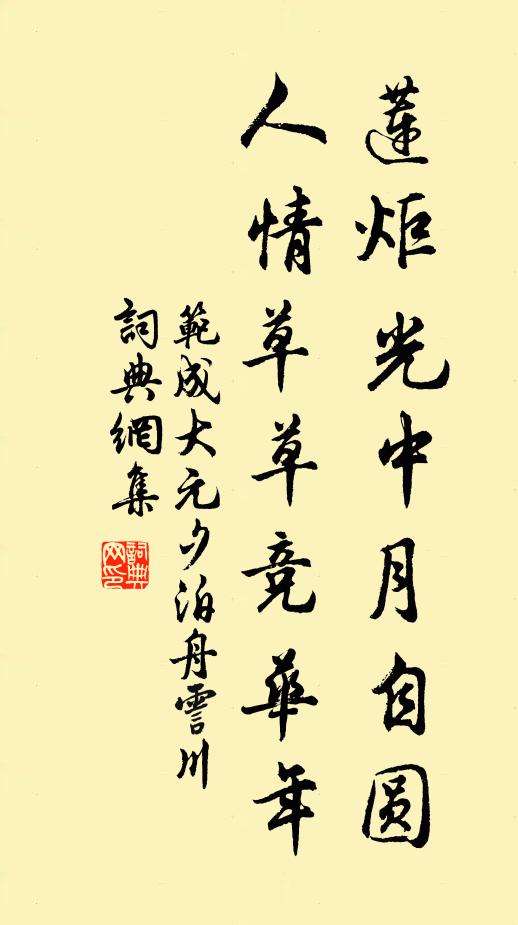 蓮炬光中月自圆
人情草草競華年
範成大元夕泊舟霅川
詞典網集
詞典网印